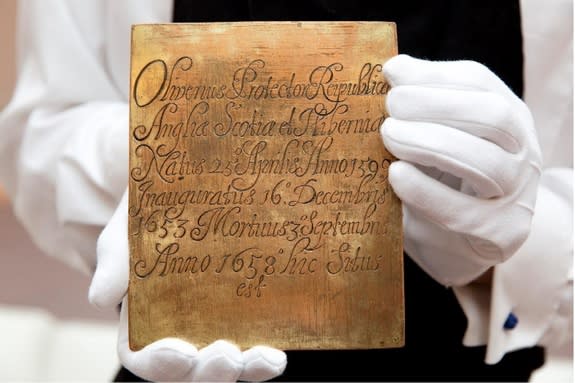 Oliverius Protector Reipublicæ
Angliæ Scotiæ et Hiberniæ
Natus 25º Aprilis Anno 1599
Inauguratus 16º Decembris
1653 Mortuus 3º Septembris
Anno 1658º hic Situs
est